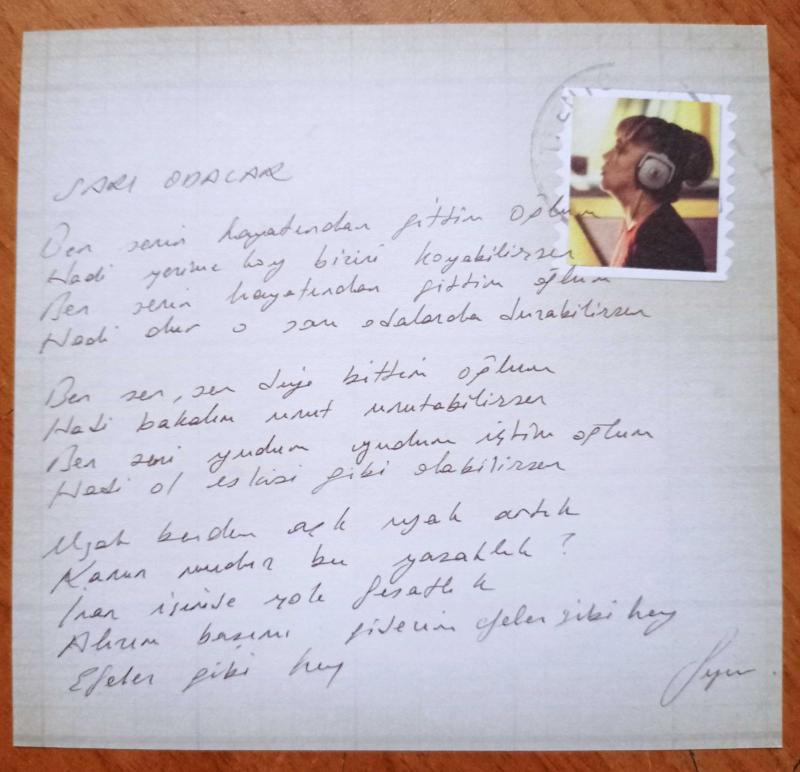 SARI ODALAR
Ben senin hayatından gittim oğlum
Hadi yerime koy birini koyabilirsen
Ben senin hayatından gittim oğlum
Hadi dur o sarı odalarda durabilirsen
Ben sen, sen diye bittim oğlum
Hadi bakalım unut unutabilirsen
Ben seni yudum yudum içtim oğlum
Hadi ol eskisi gibi olabilirsen
Uzak benden aşk uzak artık
Kanun mudur bu yasaklık?
İnan içimde yok fesatlık
Alırım başımı giderim efeler gibi hey
Efeler gibi hey